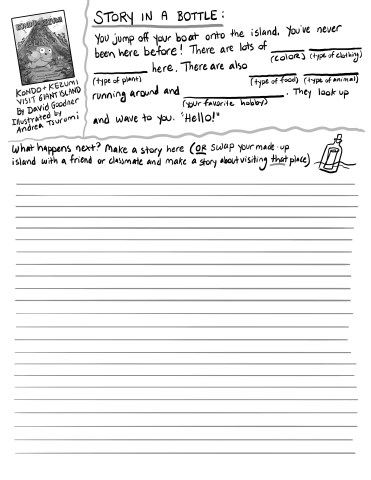 KONDO & KEZUMI
KONDO + KEZUMI
VISIT GIANT ISLAND
By DAVID Goodner
Illustrated by
Andrea Tsurumi
STORY IN A BOTTLE:
You jump off your boat onto the island. You've never
been here before! There are lots of
(color) (type of clothing)
here. There are also
(type of plant) (type of food) (type of animal)
running around and . They look up
(your favorite hobby)
and wave to you. "Hello!"
What happens next? Make a story here (OR swap your made-up
island with a friend or classmate and make a story about visiting that place)